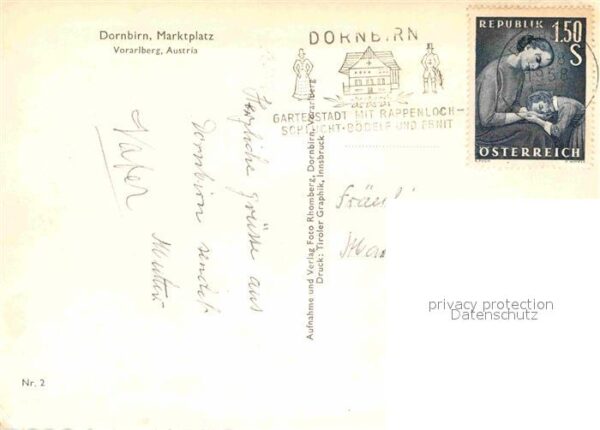 Dornbirn, Marktplatz
Vorarlberg, Austria
DORNBIRN
GARTENSTADT MIT RAPPENLOCH-
SCHLUCHT-BÖDELE UND EBNIT
1958
REPUBLIK
1.50
S
ÖSTERREICH
Herzliche Grüsse aus
Dornbirn sendet
Mutter
Vater
Aufnahme und Verlag Foto Rhomberg, Dornbirn, Vorarlberg
Druck: Tiroler Graphik, Innsbruck
privacy protection
Datenschutz
Nr. 2